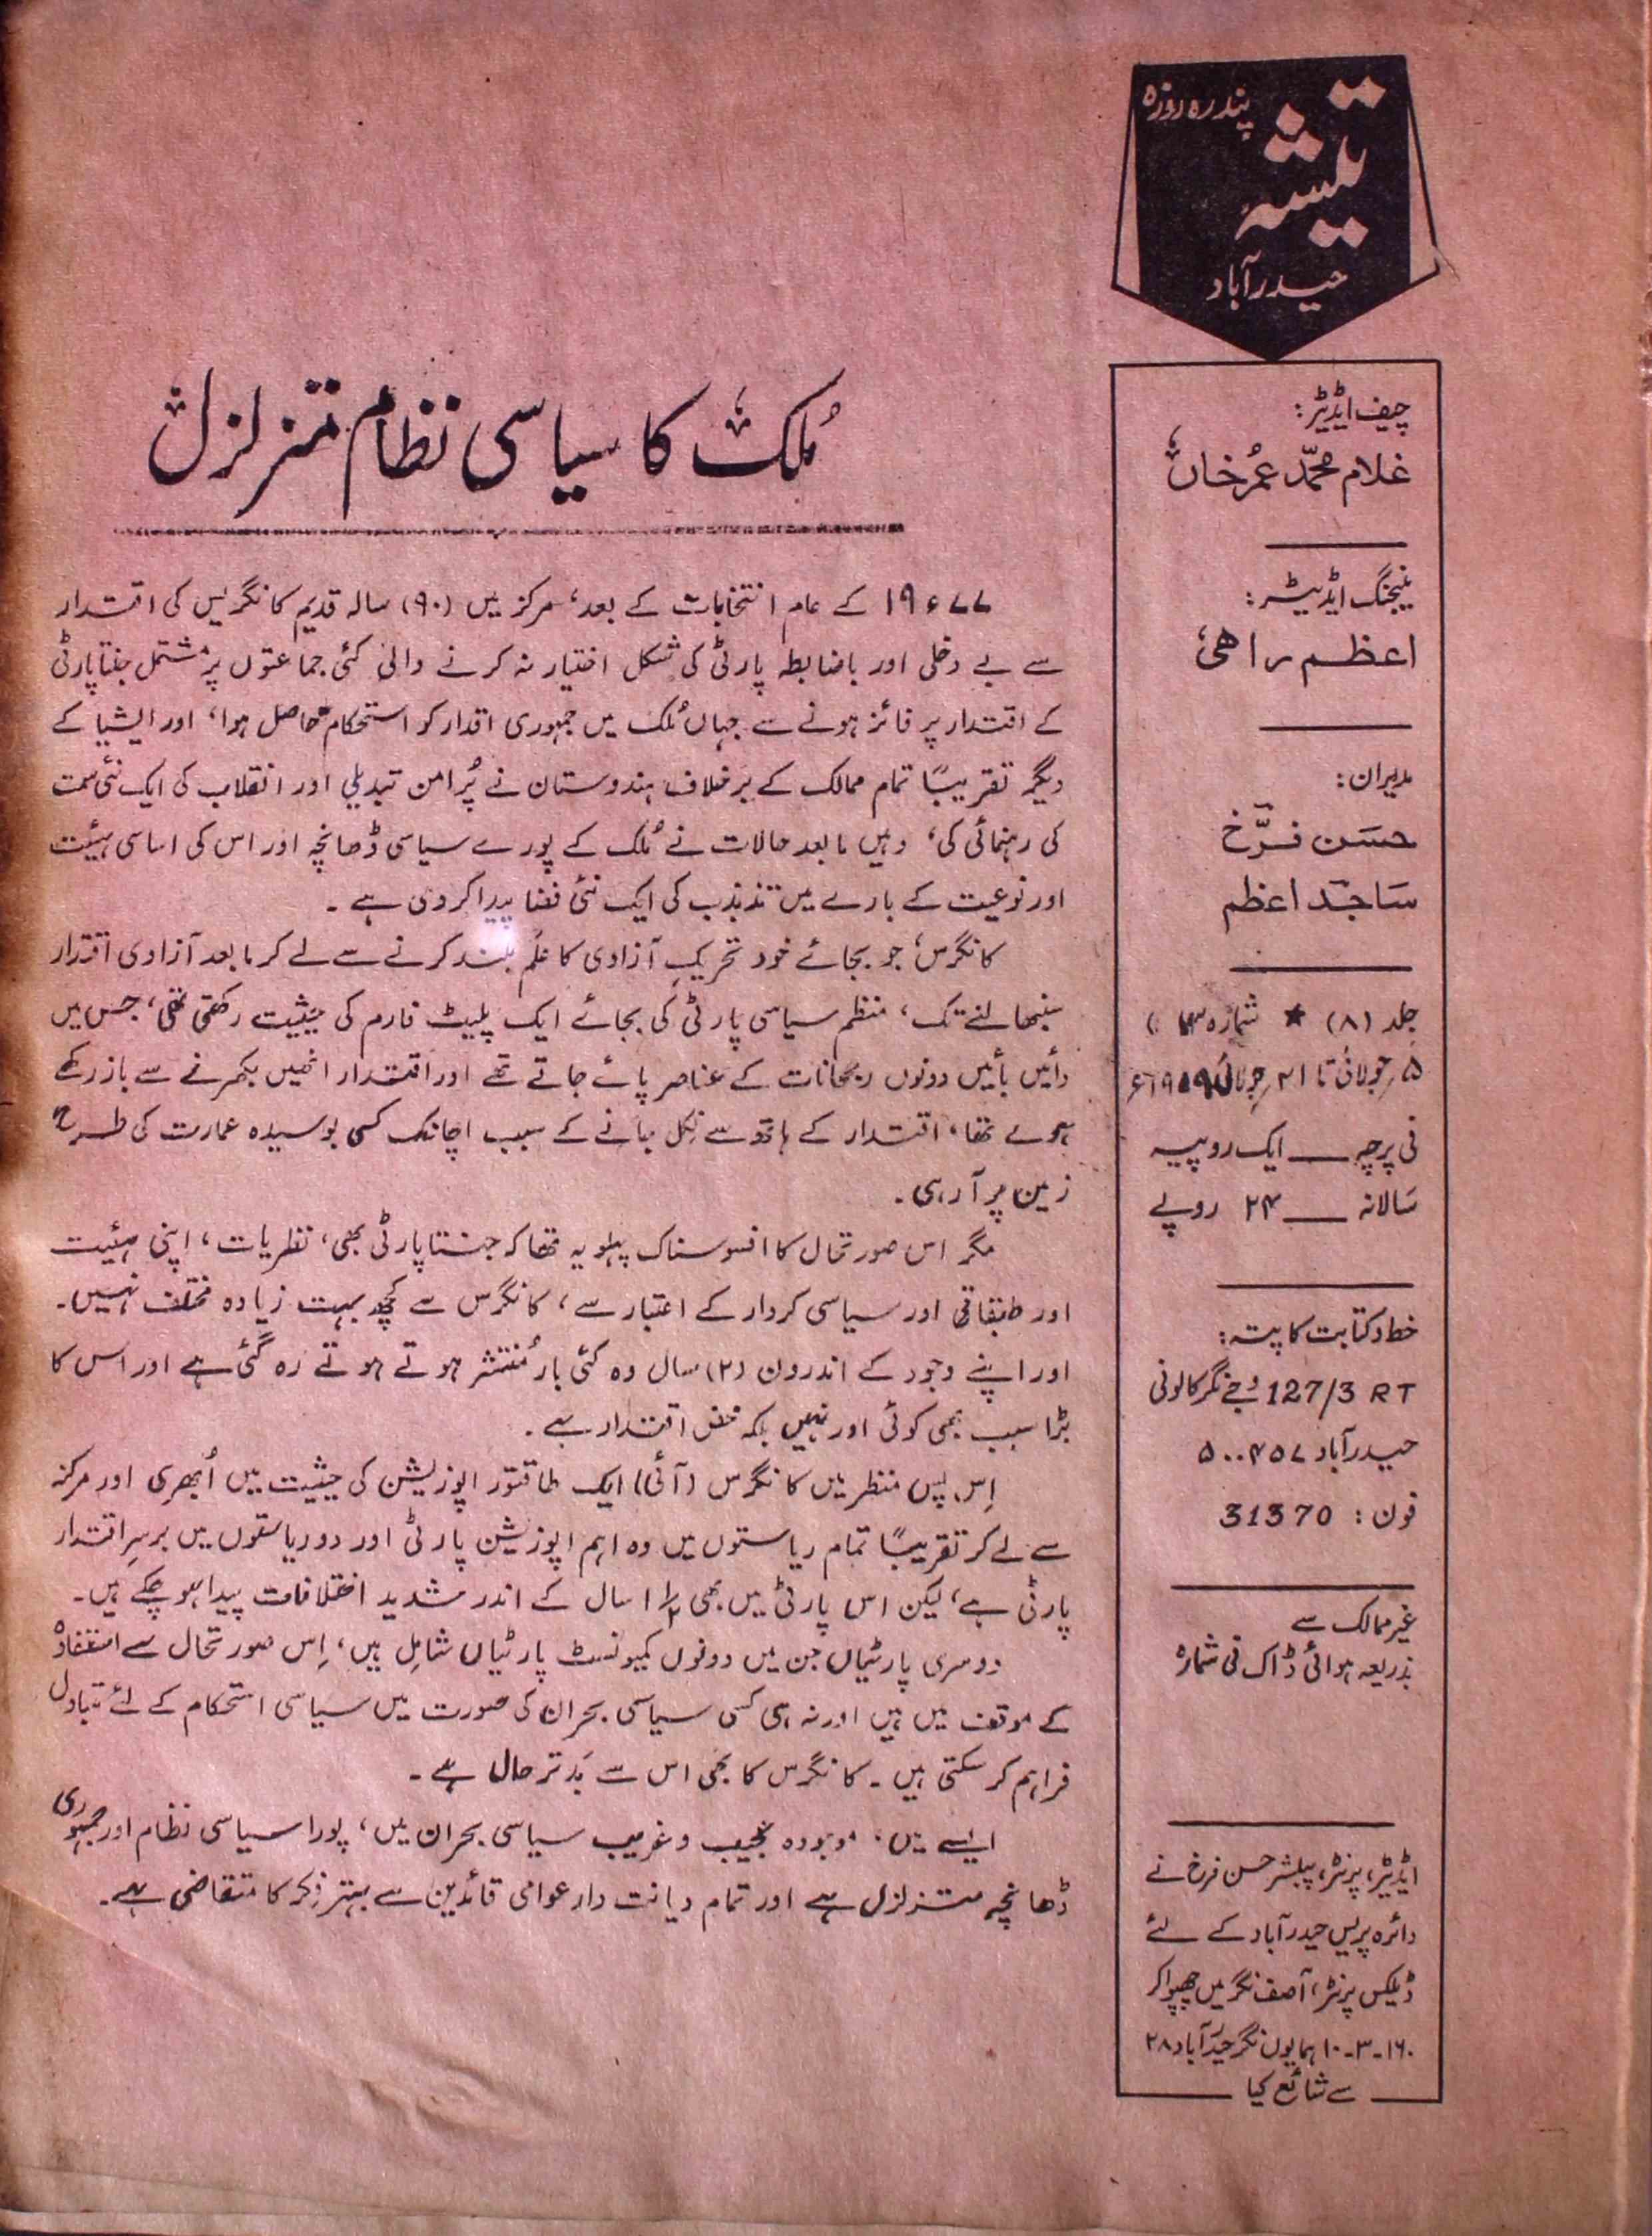 پندرہ روزہ
تیشہ
حیدرآباد
چیف ایڈیٹر:
غلام محمّد عمر خاں
منیجنگ ایڈیٹر:
اعظم راہی
مدیران:
حسن فرّخ
ساجد اعظم
جلد (۸) ★ شمارہ
۵؍جولائی تا ۲۱؍جولائی
فی پرچہ ــــ ایک روپیہ
سالانہ ــــ ۲۴ روپے
خط و کتابت کا پتہ:
127/3 RT وجے نگر کالونی
حیدرآباد ۵۰۰۴۵۷
فون: 31370
غیر ممالک سے
بذریعہ ہوائی ڈاک فی شمارہ
ایڈیٹر، پرنٹر، پبلشر حسن فرخ نے
دائرہ پریس حیدرآباد کے لئے
ڈیلکس پرنٹر، آصف نگر میں چھپوا کر
۱۶۰-۳-۱۰ ہمایوں نگر حیدرآباد ۲۸
سے شائع کیا
مُلک کا سیاسی نظام متزلزل
۱۹۷۷ء کے عام انتخابات کے بعد، مرکز میں (۹۰) سالہ قدیم کانگریس کی اقتدار
سے بے دخلی اور باضابطہ پارٹی کی شکل اختیار نہ کرنے والی کئی جماعتوں پر مشتمل جنتا پارٹی
کے اقتدار پر فائز ہونے سے جہاں مُلک میں جمہوری اقدار کو استحکام حاصل ہوا، اور ایشیا کے
دیگر تقریباً تمام ممالک کے برخلاف ہندوستان نے پُرامن تبدیلی اور انقلاب کی ایک نئی سمت
کی رہنمائی کی، وہیں مابعد حالات نے مُلک کے پورے سیاسی ڈھانچہ اور اس کی اساسی ہیئت
اور نوعیت کے بارے میں تذبذب کی ایک نئی فضا پیدا کر دی ہے۔
کانگرس، جو بجائے خود تحریکِ آزادی کا عَلَم بلند کرنے سے لے کر مابعد آزادی اقتدار
سنبھالنے تک، منظم سیاسی پارٹی کی بجائے ایک پلیٹ فارم کی حیثیت رکھتی تھی، جس میں
دائیں بائیں دونوں رجحانات کے عناصر پائے جاتے تھے اور اقتدار انھیں بکھرنے سے باز رکھے
ہوئے تھا، اقتدار کے ہاتھ سے نِکل جانے کے سبب اچانک کسی بوسیدہ عمارت کی طرح
زمین پر آ رہی۔
مگر اس صورتحال کا افسوسناک پہلو یہ تھا کہ جنتا پارٹی بھی، نظریات، اپنی ہیئت
اور طبقاتی اور سیاسی کردار کے اعتبار سے، کانگرس سے کچھ بہت زیادہ مختلف نہیں۔
اور اپنے وجود کے اندرون (۲) سال وہ کئی بار مُنتشر ہوتے ہوتے رہ گئی ہے اور اس کا
بڑا سبب بھی کوئی اور نہیں بلکہ محض اقتدار ہے۔
اِس پس منظر میں کانگرس (آئی) ایک طاقتور اپوزیشن کی حیثیت میں اُبھری اور مرکز
سے لے کر تقریباً تمام ریاستوں میں وہ اہم اپوزیشن پارٹی اور دو ریاستوں میں برسرِ اقتدار
پارٹی ہے، لیکن اس پارٹی میں بھی ۱ ۱/۲ سال کے اندر شدید اختلافات پیدا ہو چکے ہیں۔
دوسری پارٹیاں جن میں دونوں کمیونسٹ پارٹیاں شامل ہیں، اِس صورتحال سے استفادہ
کے موقف میں ہیں اور نہ ہی کسی سیاسی بحران کی صورت میں سیاسی استحکام کے لئے متبادل
فراہم کر سکتی ہیں۔ کانگرس کا بھی اس سے بَدتر حال ہے۔
ایسے میں، موجودہ عجیب و غریب سیاسی بحران میں، پورا سیاسی نظام اور جمہوری
ڈھانچہ متزلزل ہے اور تمام دیانت دار عوامی قائدین سے بہتر فِکر کا متقاضی ہے۔